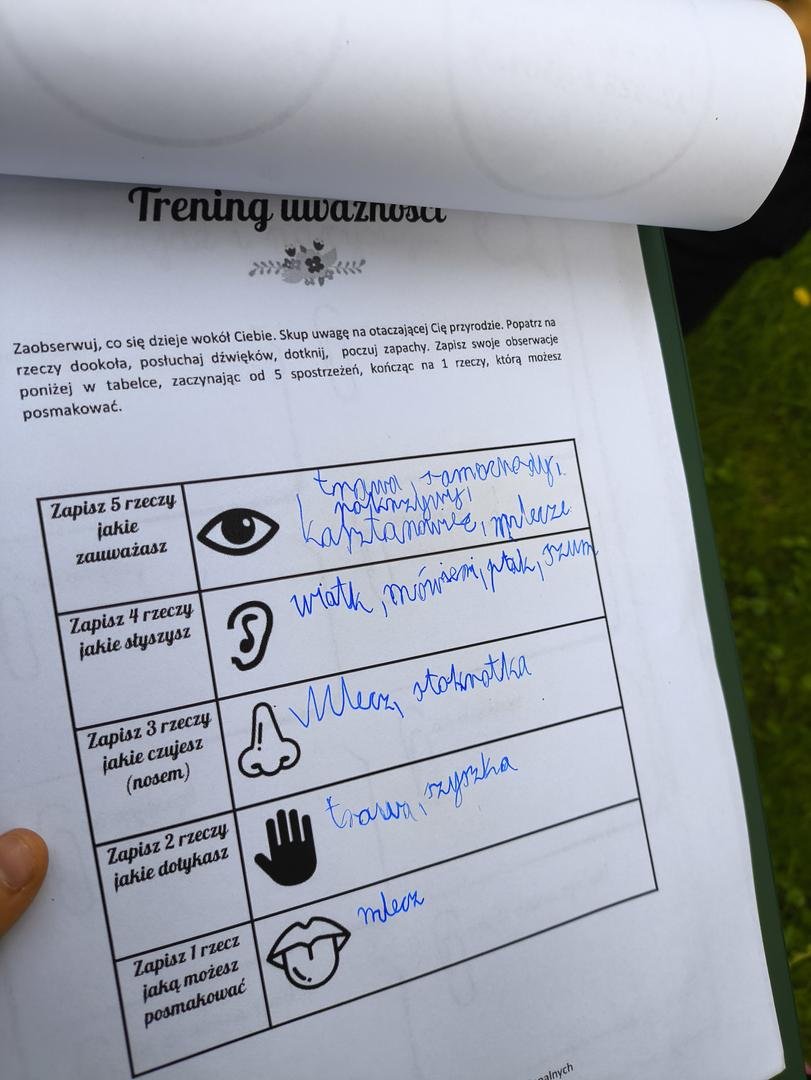 Trening uważności
Zaobserwuj, co się dzieje wokół Ciebie. Skup uwagę na otaczającej Cię przyrodzie. Popatrz na
rzeczy dookoła, posłuchaj dźwięków, dotknij, poczuj zapachy. Zapisz swoje obserwacje
poniżej w tabelce, zaczynając od 5 spostrzeżeń, kończąc na 1 rzeczy, którą możesz
posmakować.
Zapisz 5 rzeczy
jakie
zauważasz
trawa, samochody,
pokrzywy,
kasztanowiec, mlecze
Zapisz 4 rzeczy
jakie słyszysz
wiatk, mówieni, ptak, szum
Zapisz 3 rzeczy
jakie czujesz
(nosem)
Mlecz, stokrotka
Zapisz 2 rzeczy
jakie dotykasz
trawa, szyszka
Zapisz 1 rzecz
jaką możesz
posmakować
mlecz